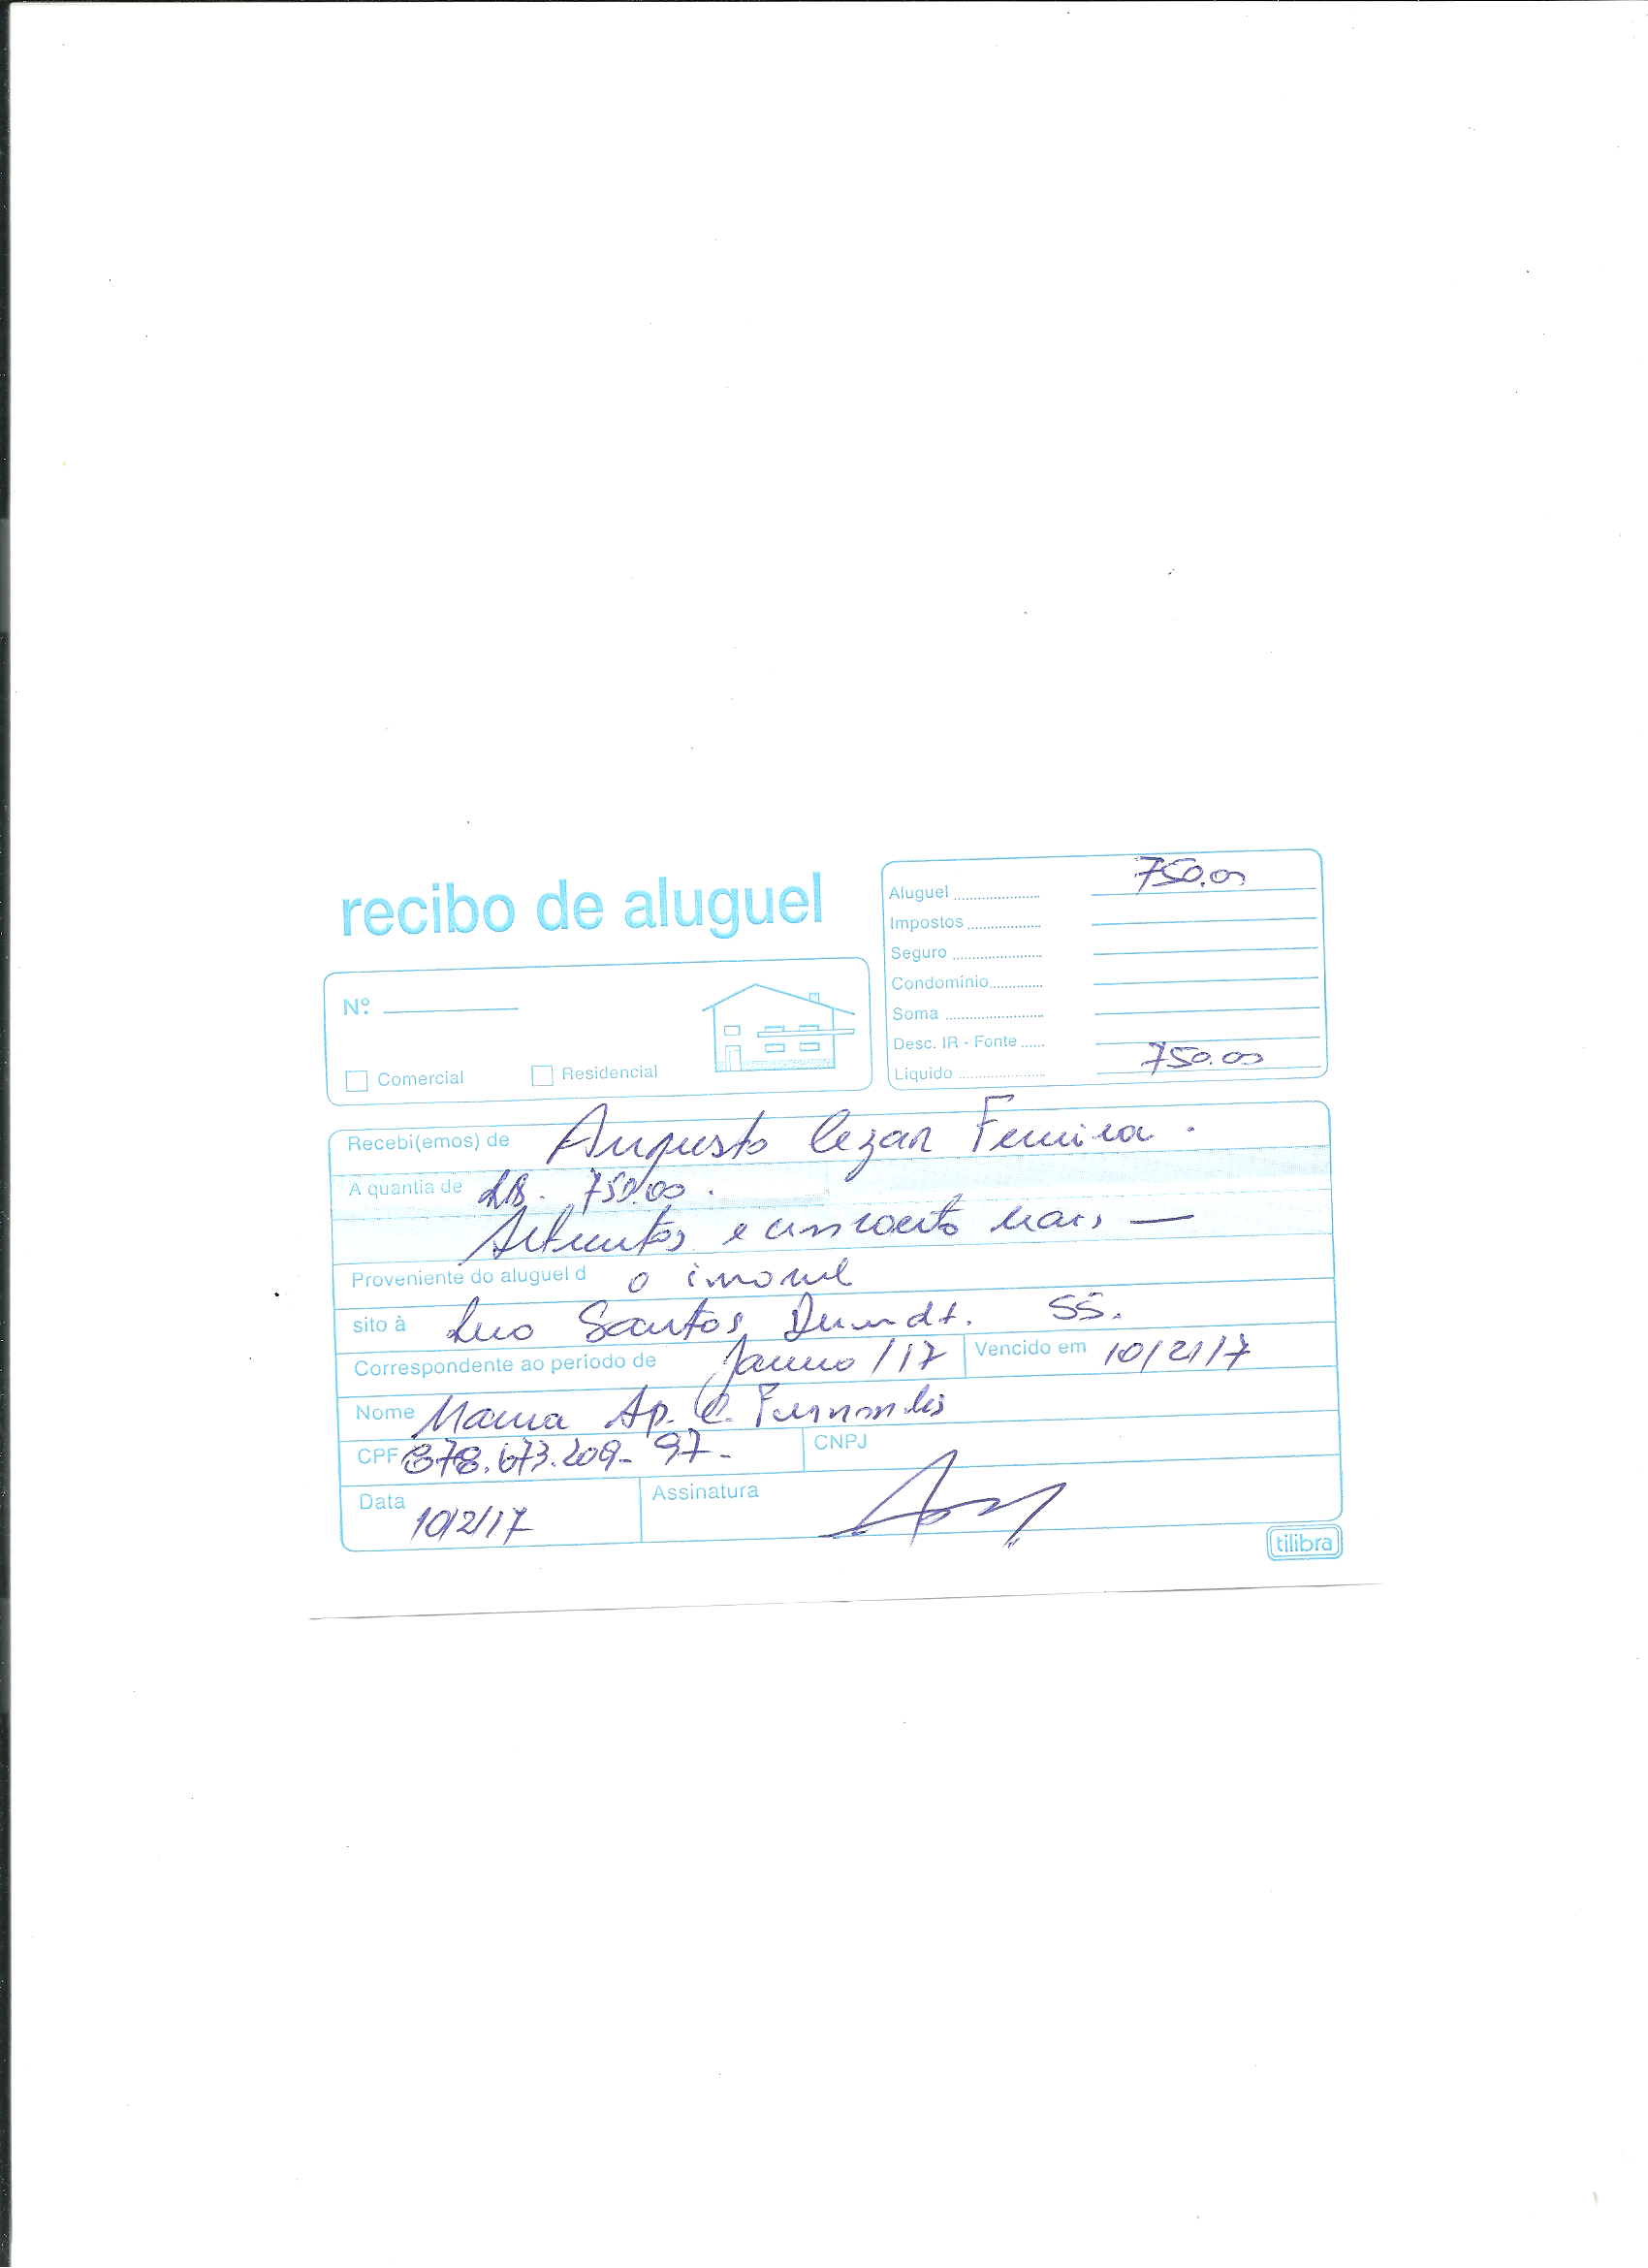 recibo de aluguel
Nº
Comercial Residencial
Aluguel 750,00
Impostos
Seguro
Condomínio
Soma
Desc. IR - Fonte
Líquido 750,00
Recebi(emos) de Augusto Cezar Ferreira.
A quantia de R$. 750,00.
Setecentos e cincoenta reais —
Proveniente do aluguel d o imovel
sito à Rua Santos Dumdt. 55.
Correspondente ao período de Janeiro / 17 Vencido em 10/2/17
Nome Maria Ap. C. Fernandes
CPF 878.673.209-97- CNPJ
Data 10/2/17 Assinatura
tilibra